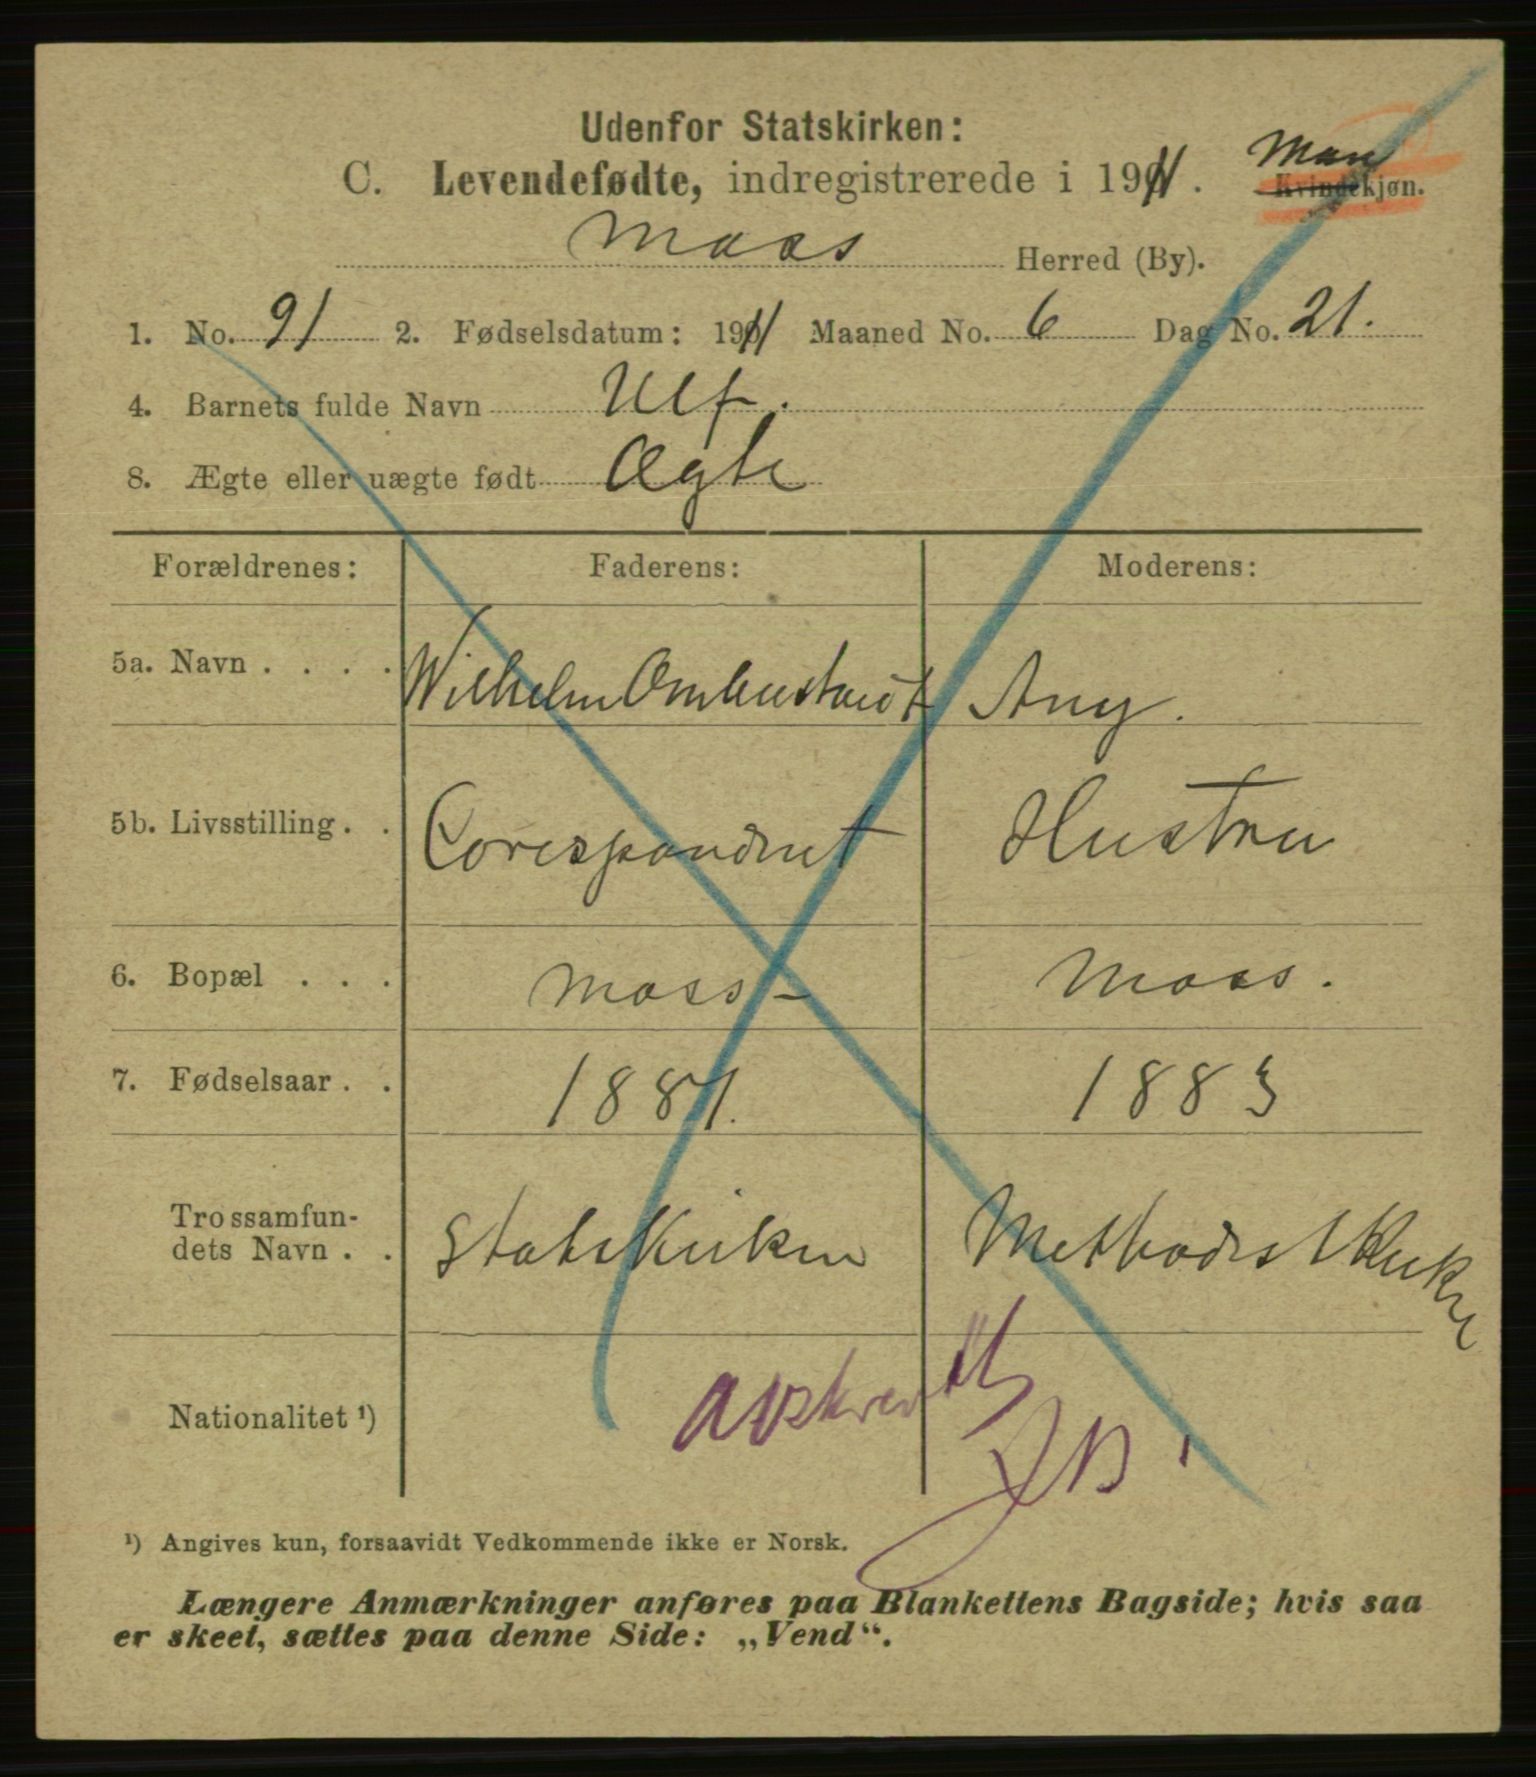 Udenfor Statskirken:
C. Levendefødte, indregistrerede i 1911. Mankjøn.
Moss Herred (By).
1. No. 91 2. Fødselsdatum: 1911 Maaned No. 6 Dag No. 21.
4. Barnets fulde Navn Ulf.
8. Ægte eller uægte født Ægte
Forældrenes: Faderens: Moderens:
5a. Navn . . . . Wilhelm Any.
5b. Livsstilling . . Corespondent Hustru
6. Bopæl . . . Moss – Moss.
7. Fødselsaar . . 1881. 1883
Trossamfun-
dets Navn . . Statskirken Methodistkirke
Nationalitet ¹)
avskrevet
¹) Angives kun, forsaavidt Vedkommende ikke er Norsk.
Længere Anmærkninger anføres paa Blankettens Bagside; hvis saa
er skeet, sættes paa denne Side: „Vend“.